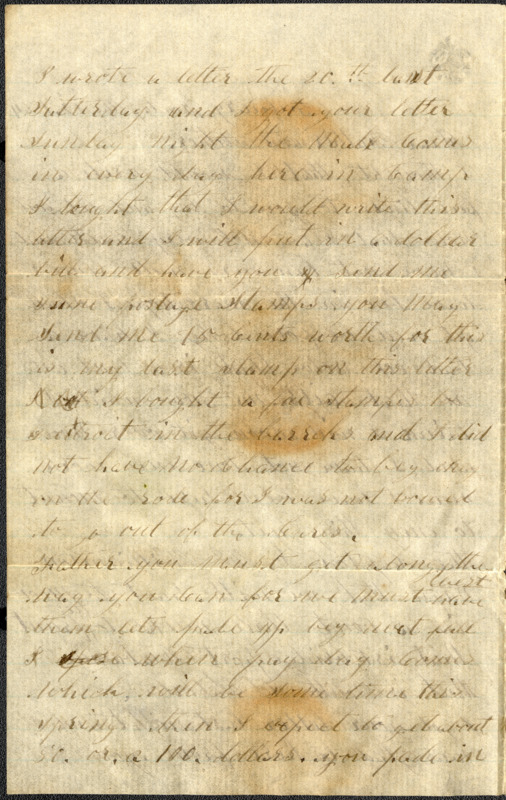 I wrote a letter the 20.th last
Satterday and I got your letter
Sunday night the Male Comes
in every day here in Camp
I tought that I would write this
letter and I will put in a dollar
bill and have you send me
some postage stamps you May
Send me 75 Cents worth for this
is my last stamp on this letter
I bought a few stamps to
Detroit in the barrcks and I did
not have no Chance to bey eny
on the rode for I was not lowed
to go out of the Cares.
Father you must get along the best
way you Can for we must have
them lets pade up bey next fall
I spose when pay day Comes
which will be some time this
spring then I expect to get about
50. or. a 100. dollars. you pade in